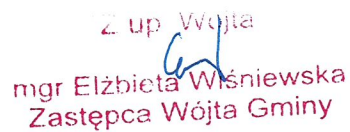 Z up. Wójta
mgr Elżbieta Wiśniewska
Zastępca Wójta Gminy